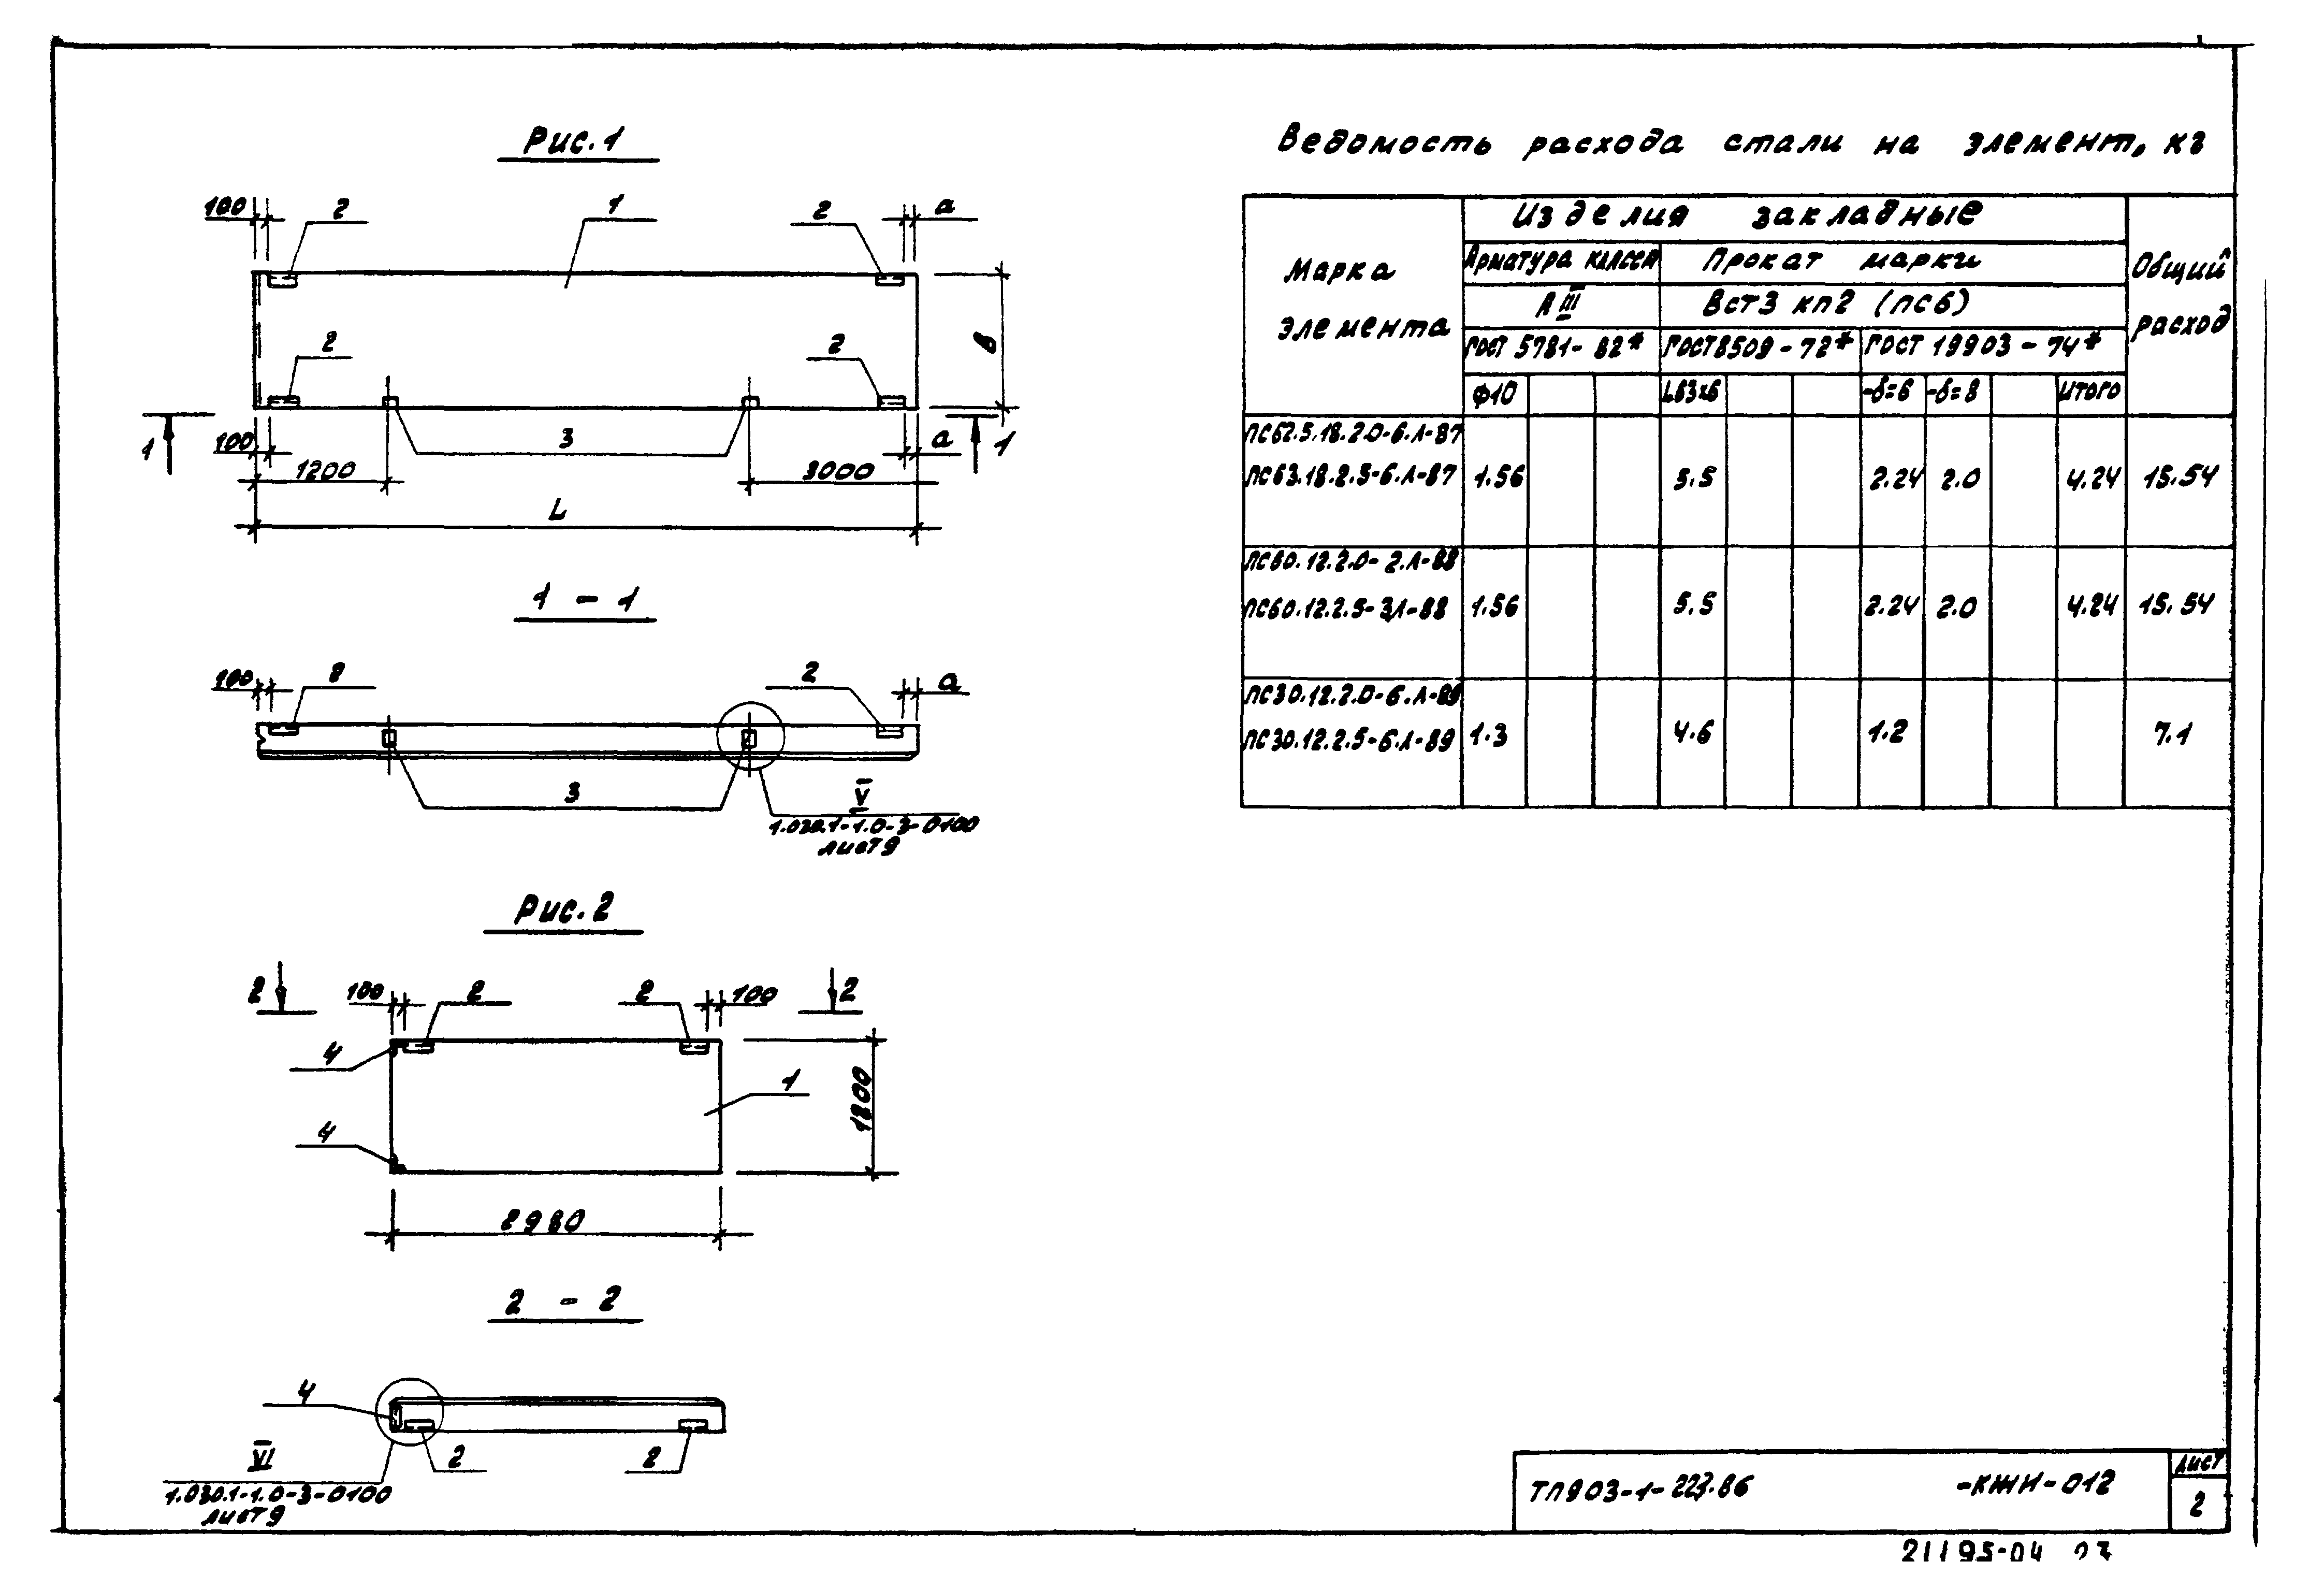 Рис.1
100 2 1 2 а
2 2 в
1 100 3 а 1
1200 3000
L
1 - 1
100 2 2 а
3 V
1.030.1-1.0-3-0100
лист 9
Рис.2
2 100 2 2 100 2
4
1
4 1200
2980
2 - 2
4
VI 2 2
1.030.1-1.0-3-0100
лист 9
Ведомость расхода стали на элемент, кг
Марка элемента
Изделия закладные
Общий расход
Арматура класса Прокат марки
А III ВСт3 кп2 (пс6)
ГОСТ 5781-82* ГОСТ 8509-72* ГОСТ 19903-74*
ф10 L63х6 -δ=6 -δ=8 Итого
ПС62.5.18.2.0-6.Л-87
ПС63.18.2.5-6.Л-87 1.56 5.5 2.24 2.0 4.24 15.54
ПС60.12.2.0-2.Л-88
ПС60.12.2.5-3Л-88 1.56 5.5 2.24 2.0 4.24 15.54
ПС30.12.2.0-6.Л-89
ПС30.12.2.5-6.Л-89 1.3 4.6 1.2 7.1
ТП903-1-223.86 -КЖИ-012
Лист
2
21195-04